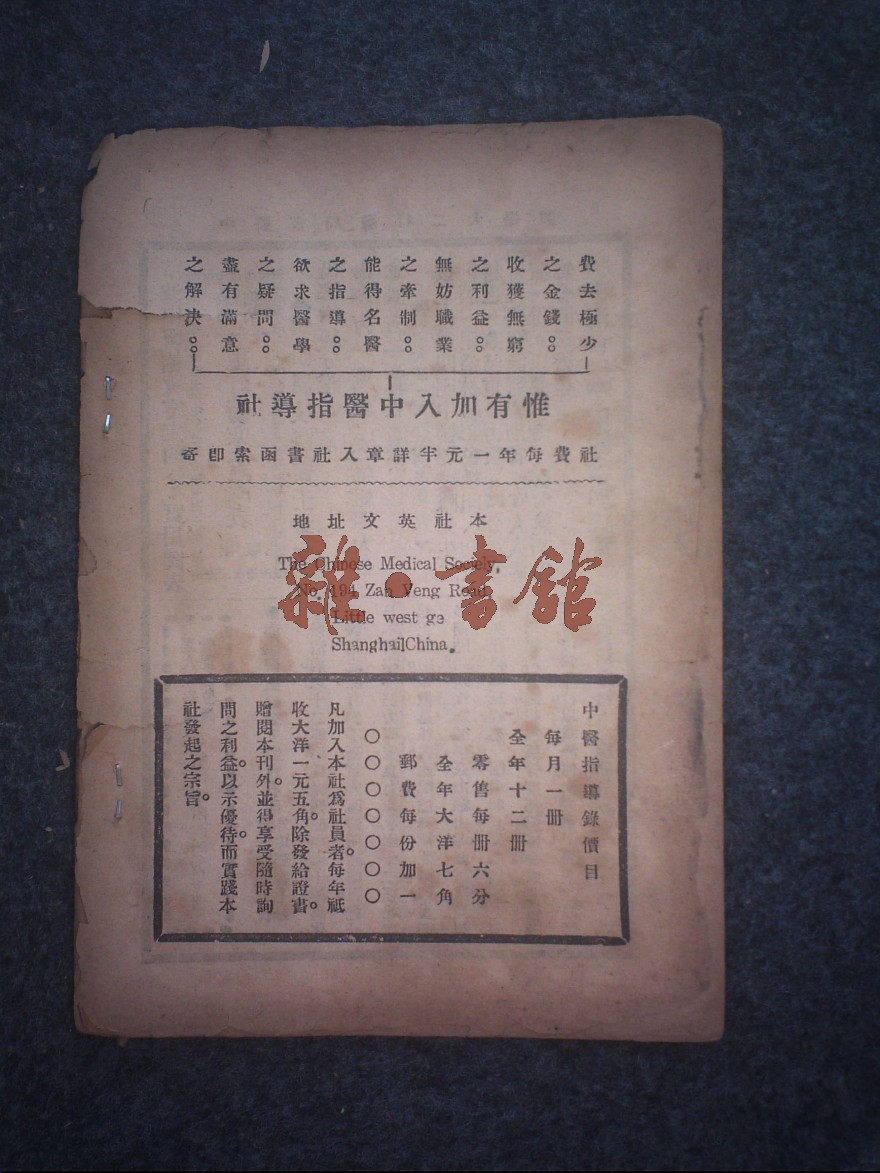 費去極少
之金錢。
收獲無窮
之利益。
無妨職業
之牽制。
能得名醫
之指導。
欲求醫學
之疑問。
盡有滿意
之解決。
惟有加入中醫指導社
社費每年一元半詳章入社書函索即寄
本社英文地址
The Chinese Medical Society,
No. 194 Zan Veng Road
Little west ga
Shanghai China.
中醫指導錄價目
每月一冊
全年十二冊
零售每冊六分
全年大洋七角
郵費每份加一
〇〇〇〇〇〇〇
凡加入本社爲社員者。每年祗
收大洋一元五角。除發給證書。
贈閱本刊外。並得享受隨時詢
問之利益。以示優待。而實踐本
社發起之宗旨。
雜·書館